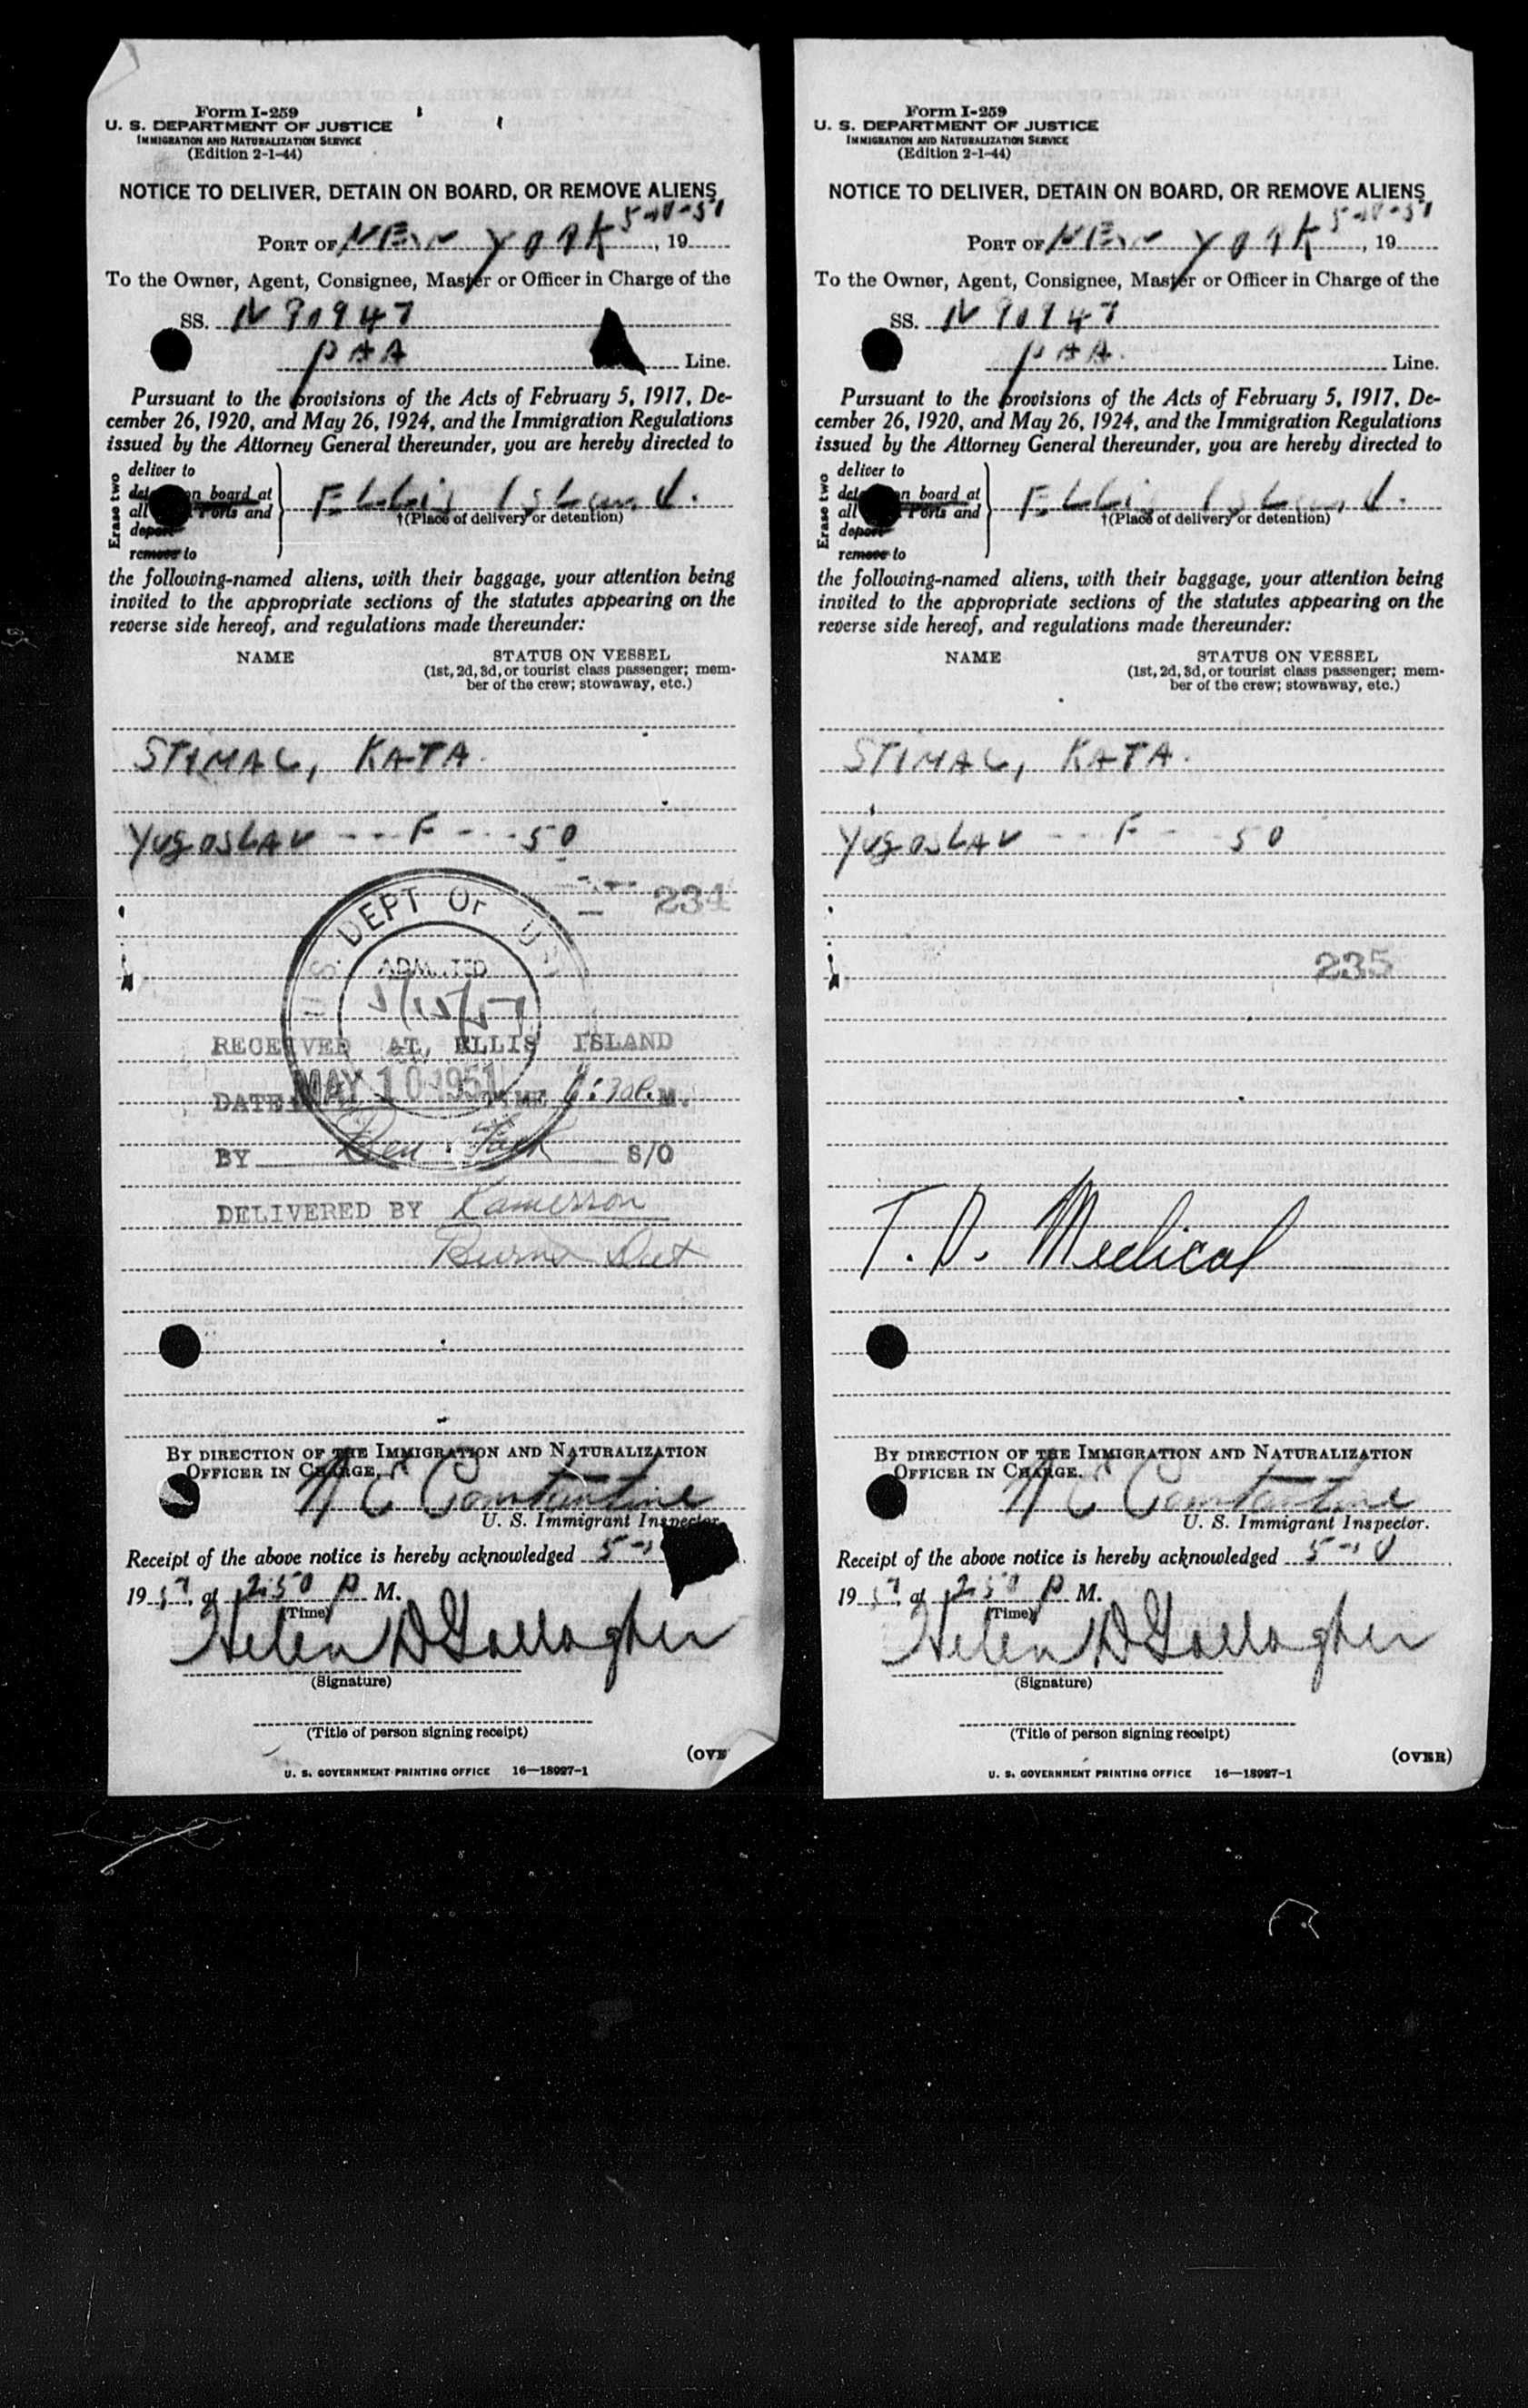 Form I-259
U. S. DEPARTMENT OF JUSTICE
IMMIGRATION AND NATURALIZATION SERVICE
(Edition 2-1-44)
NOTICE TO DELIVER, DETAIN ON BOARD, OR REMOVE ALIENS
5-10-51
PORT OF NEW YORK, 19
To the Owner, Agent, Consignee, Master or Officer in Charge of the
SS. N 90947
PAA Line.
Pursuant to the provisions of the Acts of February 5, 1917, De-
cember 26, 1920, and May 26, 1924, and the Immigration Regulations
issued by the Attorney General thereunder, you are hereby directed to
Erase two
deliver to
on board at
all Ports and
deport
remove to
Ellis Island.
†(Place of delivery or detention)
the following-named aliens, with their baggage, your attention being
invited to the appropriate sections of the statutes appearing on the
reverse side hereof, and regulations made thereunder:
NAME STATUS ON VESSEL
(1st, 2d, 3d, or tourist class passenger; mem-
ber of the crew; stowaway, etc.)
STIMAC, KATA.
YUgOSLAV --- F --- 50
234
U. S. DEPT OF
ADMITTED
RECEIVED AT, ELLIS ISLAND
DATE MAY 10 1951 TIME 6:30 P.M.
BY S/O
DELIVERED BY Kamerson
Burns Det
BY DIRECTION OF THE IMMIGRATION AND NATURALIZATION
OFFICER IN CHARGE.
N C Constantine
U. S. Immigrant Inspector.
Receipt of the above notice is hereby acknowledged 5-1
1951, at 2:50 P M.
(Time)
Helen D Gallagher
(Signature)
(Title of person signing receipt)
(OVE
U. S. GOVERNMENT PRINTING OFFICE 16—18027-1
Form I-259
U. S. DEPARTMENT OF JUSTICE
IMMIGRATION AND NATURALIZATION SERVICE
(Edition 2-1-44)
NOTICE TO DELIVER, DETAIN ON BOARD, OR REMOVE ALIENS
5-10-51
PORT OF NEW YORK, 19
To the Owner, Agent, Consignee, Master or Officer in Charge of the
SS. N 90947
PAA. Line.
Pursuant to the provisions of the Acts of February 5, 1917, De-
cember 26, 1920, and May 26, 1924, and the Immigration Regulations
issued by the Attorney General thereunder, you are hereby directed to
Erase two
deliver to
on board at
all Ports and
deport
remove to
Ellis Island.
†(Place of delivery or detention)
the following-named aliens, with their baggage, your attention being
invited to the appropriate sections of the statutes appearing on the
reverse side hereof, and regulations made thereunder:
NAME STATUS ON VESSEL
(1st, 2d, 3d, or tourist class passenger; mem-
ber of the crew; stowaway, etc.)
STIMAC, KATA.
YUgOSLAV -- F - 50
235
T. D. Medical
BY DIRECTION OF THE IMMIGRATION AND NATURALIZATION
OFFICER IN CHARGE.
N C Constantine
U. S. Immigrant Inspector.
Receipt of the above notice is hereby acknowledged 5-10
1951, at 2:50 P M.
(Time)
Helen D Gallagher
(Signature)
(Title of person signing receipt)
(OVER)
U. S. GOVERNMENT PRINTING OFFICE 16—18027-1